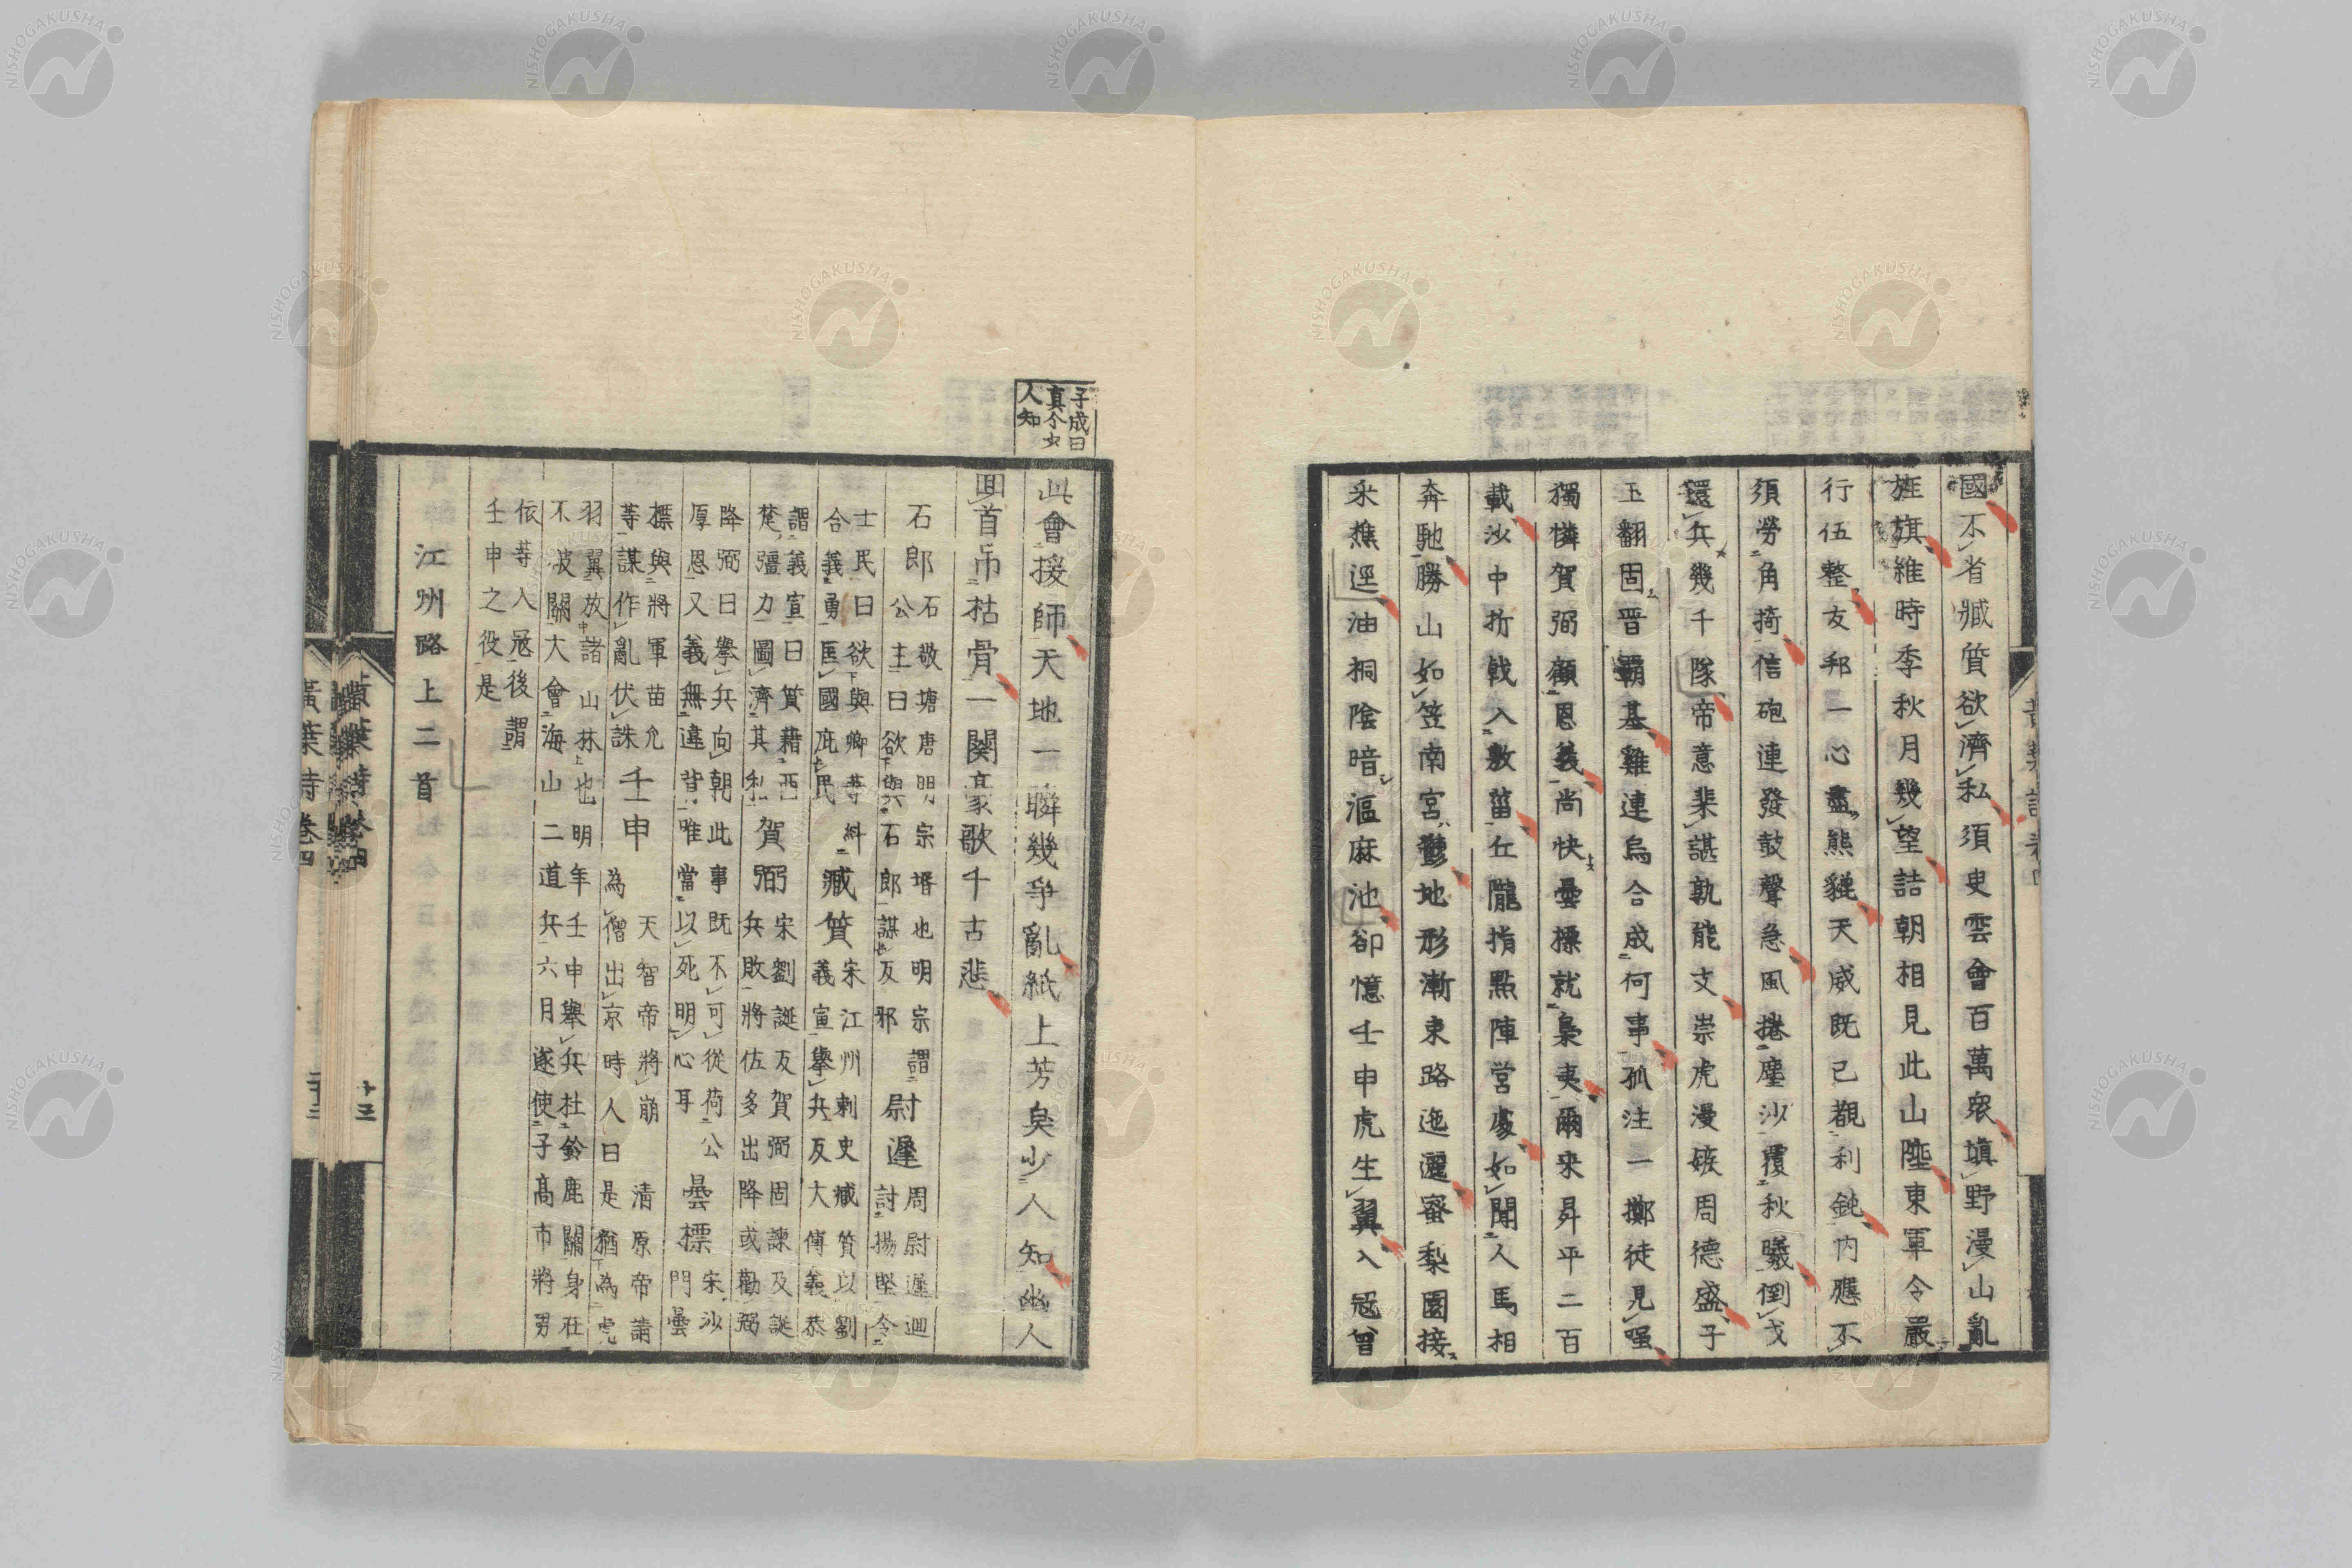 國不省臧質欲濟私須史雲會百萬衆塡野漫山亂
旌旗維時季秋月幾望詰朝相見此山陲東軍令嚴
行伍整友邦一心盡熊貔天威既已覩利鈍内應不
須勞角掎信砲連發鼓聲急風捲塵沙覆秋曦倒戈
還兵幾千隊帝意棐諶孰能支崇虎漫嫉周德盛子
玉翻固晉覇基雞連烏合成何事孤注一擲徒見嗤
獨憐賀弼顧恩義尚快曇摽就梟夷爾來昇平二百
載沙中折戟入敷菑丘隴指點陣営處如聞人馬相
奔馳勝山如笠南宮鬱地形漸東路迤邐蜜梨園接
采樵逕油桐陰暗漚麻池卻憶壬申虎生翼入冦曾
子成曰
真个少
人知
此會援師天地一瞬幾爭亂紙上芳臭少人知幽人
回首弔枯骨一闋豪歌千古悲
石郎 石敬塘唐明宗壻也明宗
公主曰欲與石郎謀反邪 謂
尉遲 周尉遲迥
討揚堅令
士民曰欲與卿等糾
合義勇匡國庇民
臧質 宋江州刺史臧質以劉
義宣擧兵反大傅義恭
謂義宣曰質藉西
楚彊力圖濟其私
賀弼 宋劉誕反賀弼固諫及誕
兵敗將佐多出降或勸弼
降弼曰擧兵向朝此事既不可從荷公
厚恩又義無違背唯當以死明心耳
曇摽 宋沙
門曇
摽與將軍苗允
等謀作亂伏誅
壬申 天智帝將崩 清原帝請
為僧出京時人曰是猶為虎
羽翼放諸山林也明年壬申擧兵杜鈴鹿關身在
不破關大會海山二道兵六月遂使子高市將男
依等入冦後謂
壬申之役是
江州路上二首
黃葉詩卷四
十三
NISHOGAKUSHA